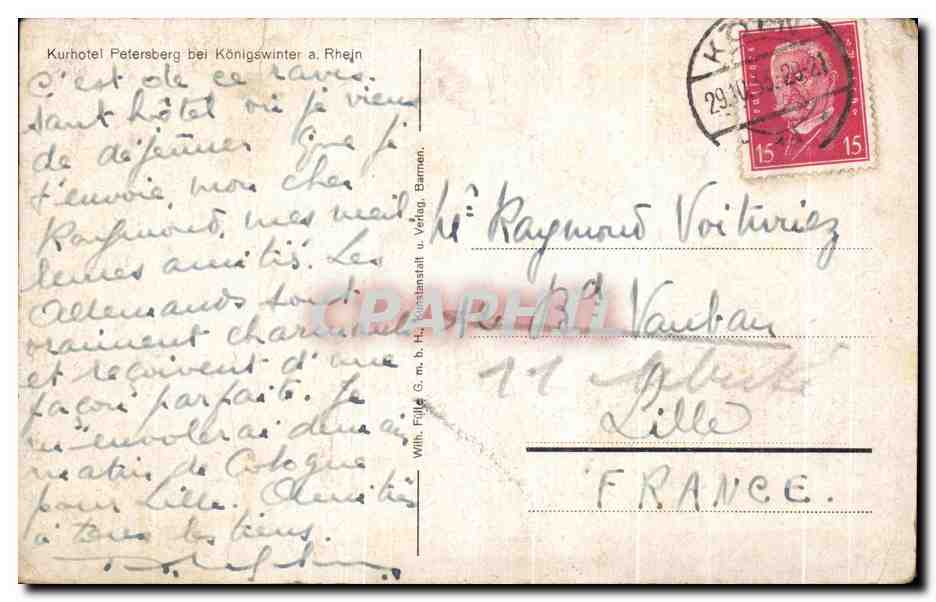 Kurhotel Petersberg bei Königswinter a. Rhein
C'est de ce ravis-
sant hôtel où je viens
de déjeuner que je
t'envoie, mon cher
Raymond, mes meil-
leures amitiés. Les
Allemands sont
vraiment charmants
et reçoivent d'une
façon parfaite. Je
m'envolerai demain
matin de Cologne
pour Lille. Amitiés
à tous les tiens.
Wilh. Fülle G. m. b. H., Kunstanstalt u. Verlag, Barmen.
KÖLN
29.10.30. 20-21
15 15
Mr Raymond Voituriez
Bd Vauban
11
Lille
FRANCE.
CRAPHIL